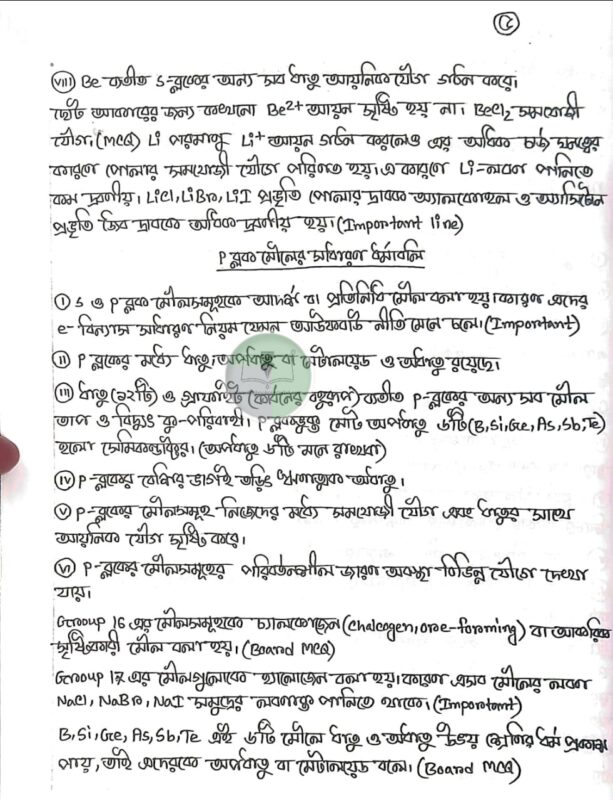 ১৫
(viii) Be ব্যতীত s-ব্লকের অন্য সব ধাতু আয়নিক যৌগ গঠন করে।
ছোট আকারের জন্য কখনো Be2+ আয়ন সৃষ্টি হয় না। BeCl2 সমযোজী
যৌগ। (MCQ) Li পরমাণু Li+ আয়ন গঠন করলেও এর অধিক চার্জ ঘনত্বের
কারণে পোলার সমযোজী যৌগে পরিণত হয়। এ কারণে Li-লবণ পানিতে
কম দ্রবণীয়। LiCl, LiBr, LiI প্রভৃতি পোলার দ্রাবক অ্যালকোহল ও অ্যাসিটোন
প্রভৃতি জৈব দ্রাবকে অধিক দ্রবণীয় হয়। (Important line)
P ব্লক মৌলের সাধারণ ধর্মাবলি
(i) s ও p ব্লক মৌলসমূহকে আদর্শ বা প্রতিনিধি মৌল বলা হয়। কারণ এদের
e- বিন্যাস সাধারণ নিয়ম যেমন আউফবাউ নীতি মেনে চলে। (Important)
(ii) P ব্লকের মধ্যে ধাতু, অপধাতু বা মেটালয়েড ও অধাতু রয়েছে।
(iii) ধাতু (১২টি) ও গ্রাফাইট (কার্বনের বহুরূপ) ব্যতীত P-ব্লকের অন্য সব মৌল
তাপ ও বিদ্যুৎ কু-পরিবাহী। P ব্লকভুক্ত মোট অপধাতু ৬টি (B, Si, Ge, As, Sb, Te)
হলো সেমিকন্ডাক্টর। (অপধাতু ৬টি মনে রাখবা)
(iv) P-ব্লকের বেশির ভাগই তড়িৎ ঋণাত্মক অধাতু।
(v) P-ব্লকের মৌলসমূহ নিজেদের মধ্যে সমযোজী যৌগ এবং ধাতুর সাথে
আয়নিক যৌগ সৃষ্টি করে।
(vi) P-ব্লকের মৌলসমূহের পরিবর্তনশীল জারণ অবস্থা বিভিন্ন যৌগে দেখা
যায়।
Group 16 এর মৌলসমূহকে চ্যালকোজেন (chalcogen, ore-forming) বা আকরিক
সৃষ্টিকারী মৌল বলা হয়। (Board MCQ)
Group 17 এর মৌলগুলোকে হ্যালোজেন বলা হয়। কারণ এসব মৌলের লবণ
NaCl, NaBr, NaI সমুদ্রের লবণাক্ত পানিতে থাকে। (Important)
B, Si, Ge, As, Sb, Te এই ৬টি মৌলে ধাতু ও অধাতু উভয় শ্রেণির ধর্ম প্রকাশ
পায়, তাই এদেরকে অপধাতু বা মেটালয়েড বলে। (Board MCQ)